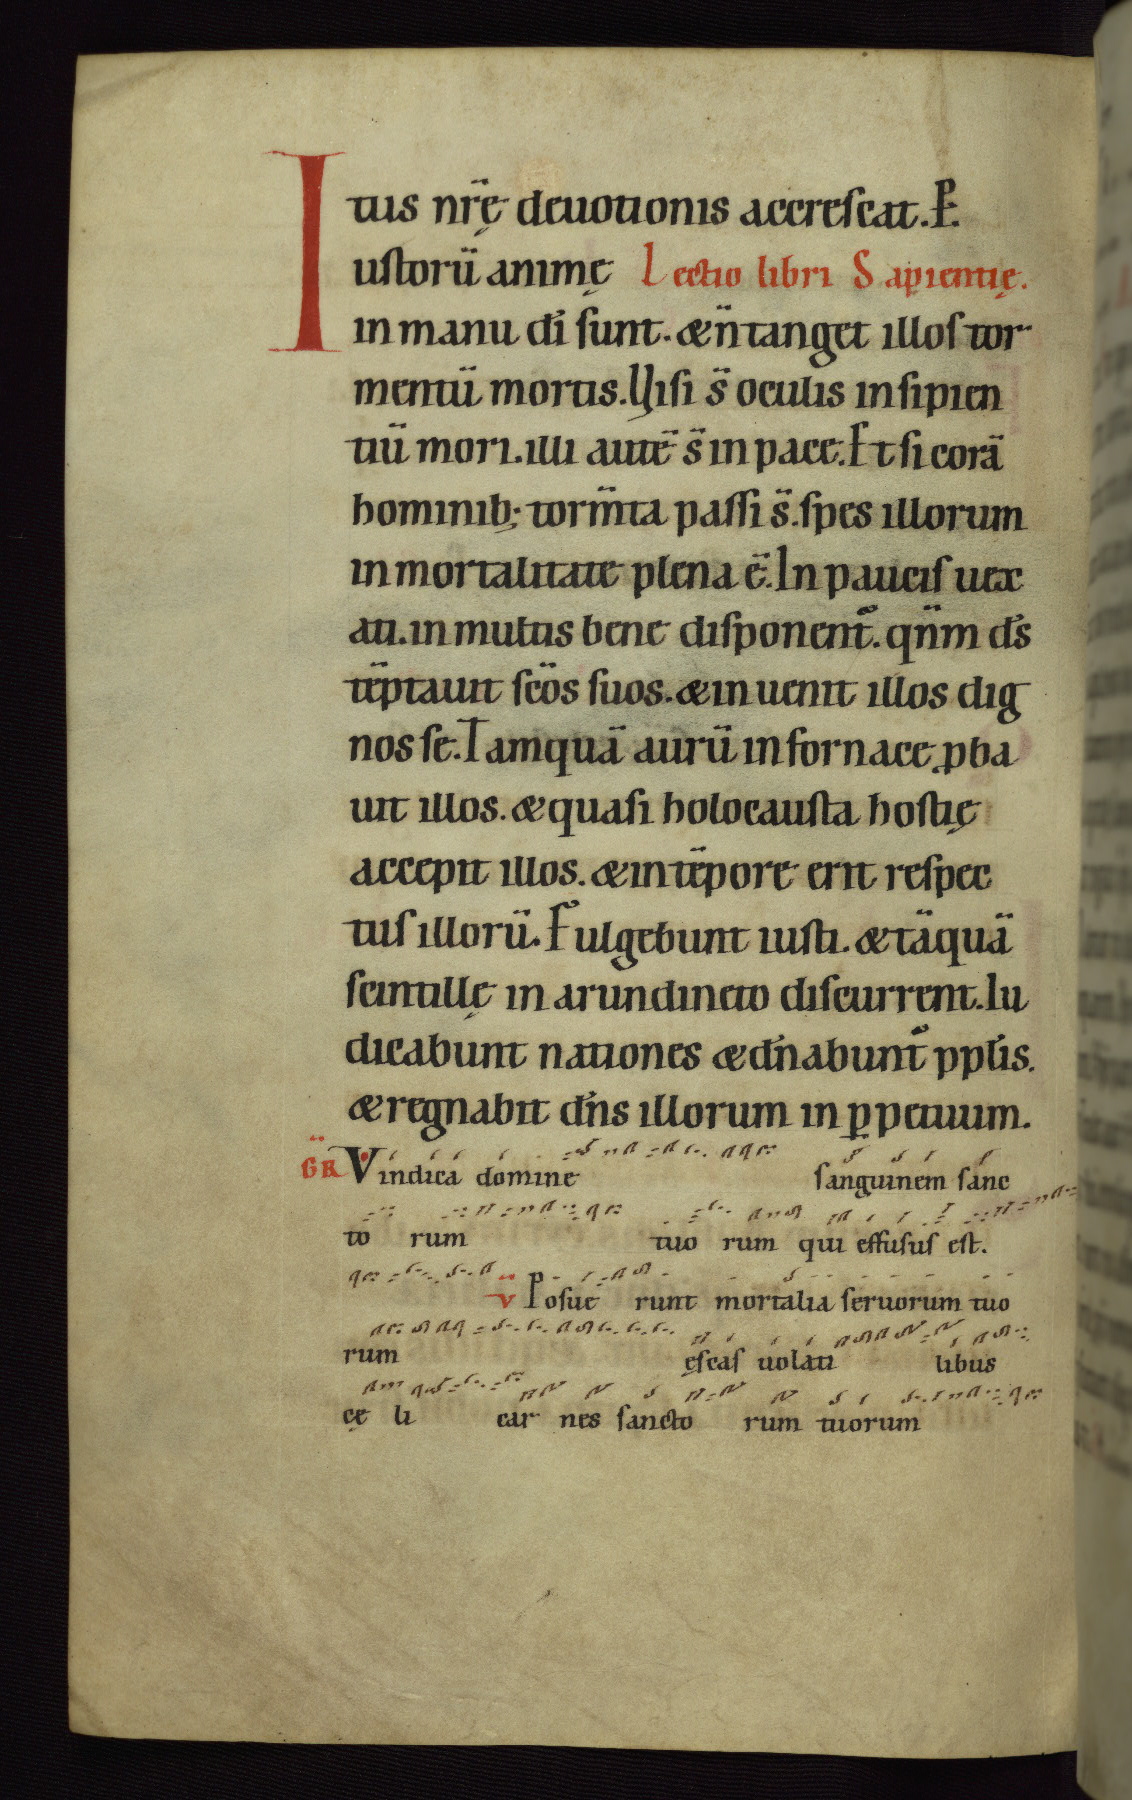 tus nr̄ę deuotionis accrescat. P.
Iustorū animę Lectio libri Sapientię.
in manu dī sunt. & n̄ tanget illos tor
mentū mortis. Uisi s̄ oculis insipien
tiū mori. illi autē s̄ in pace. Et si corā
hominib; torm̄ta passi s̄. spes illorum
inmortalitate plena ē. In paucis uex
ati. in multis bene disponent᷒. qn̄m ds̄
tēptauit scōs suos. & inuenit illos dig
nos se. Tamquā aurū in fornace ꝓba
uit illos. & quasi holocausta hostię
accepit illos. & in tēpore erit respec
tus illorū. Fulgebunt iusti. & tāquā
scintillę in arundineto discurrent. Iu
dicabunt nationes & dn̄abunt᷒ pplis̄.
& regnabit dn̄s illorum in ꝑpetuum.
GR̄ Vindica domine sanguinem sanc
to rum tuo rum qui effusus est.
v̄ Posue runt mortalia seruorum tuo
rum ęscas uolati libus
cę li car nes sancto rum tuorum